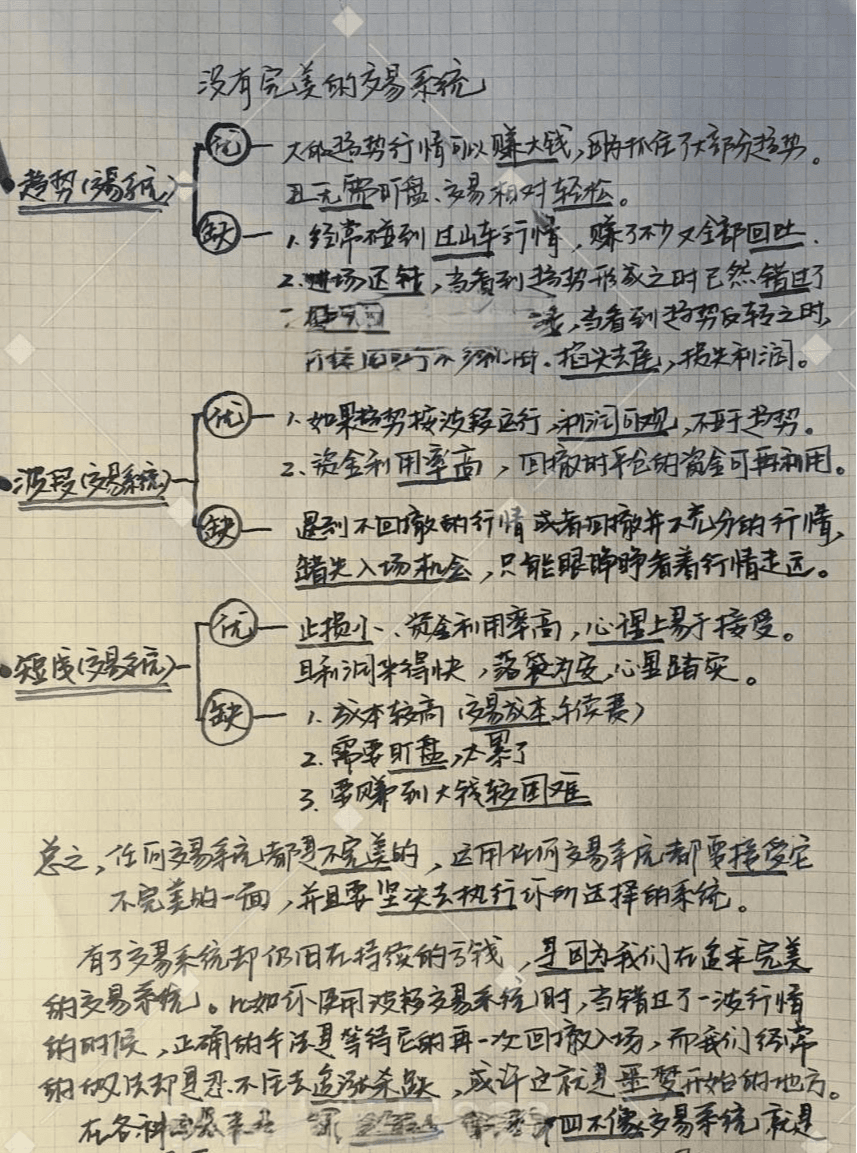 没有完美的交易系统
趋势(交易系统)
优
大的趋势行情可以赚大钱,因为抓住了大部分趋势。
且无需盯盘、交易相对轻松。
缺
1. 经常碰到过山车行情,赚了不少又全部回吐.
2. 进场迟钝,当看到趋势形成之时已然错过了
一 ,当看到趋势反转之时,
掐头去尾,损失利润。
波段(交易系统)
优
1. 如果趋势按波段运行,利润可观,不亚于趋势。
2. 资金利用率高,回撤时平仓的资金可再利用。
缺
遇到不回撤的行情或者回撤并不充分的行情,
错失入场机会,只能眼睁睁看着行情走远。
短线(交易系统)
优
止损小、资金利用率高,心理上易于接受。
且利润来得快,落袋为安,心里踏实。
缺
1. 成本较高(交易成本,手续费)
2. 需要盯盘,太累了
3. 要赚到大钱较困难
总之,任何交易系统都是不完美的,运用任何交易系统都要接受它
不完美的一面,并且要坚决去执行你所选择的系统。
有了交易系统却仍旧在持续的亏钱,是因为我们在追求完美
的交易系统。比如你使用波段交易系统时,当错过了一波行情
的时候,正确的手法是等待它的再一次回撤入场,而我们经常
的做法却是忍不住去追涨杀跌,或许这就是噩梦开始的地方。
在各种 四不像交易系统就是